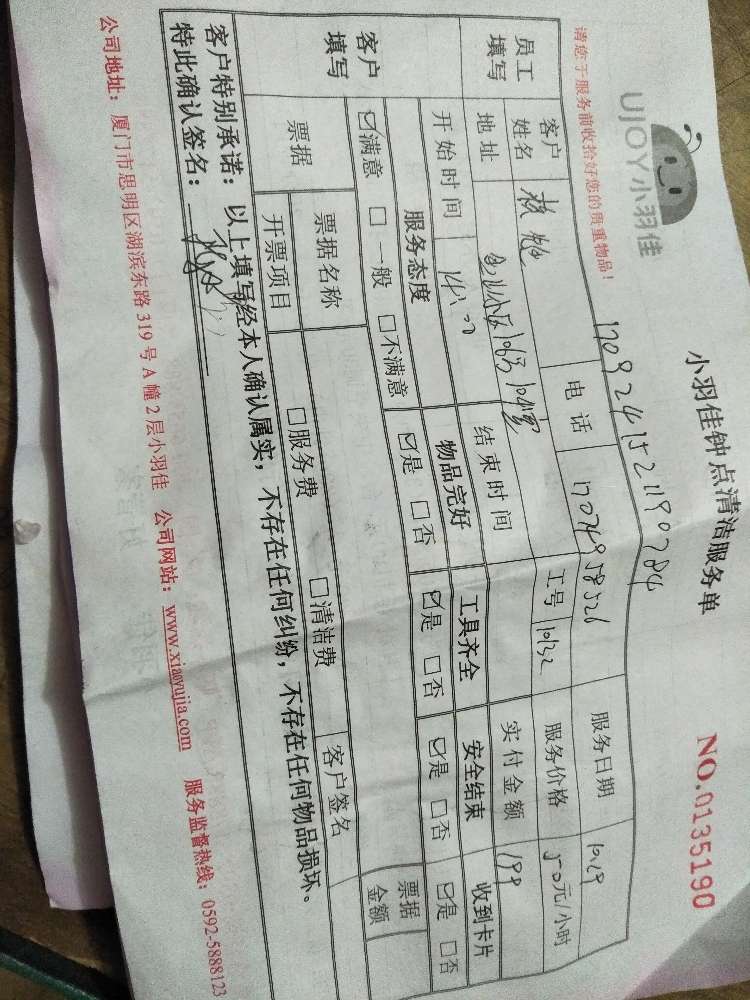 UJOY小羽佳
小羽佳钟点清洁服务单
NO.0135190
请您于服务前收拾好您的贵重物品!
1709241521190784
员工填写
客户姓名
电话
服务日期 10.29
地址
工号 10132
服务价格 50元/小时
开始时间 14:00
结束时间
实付金额 198
客户填写
服务态度 物品完好 工具齐全 安全结束 收到卡片
☑满意 □一般 □不满意 ☑是 □否 ☑是 □否 ☑是 □否 ☑是 □否
票据 票据名称 □服务费 □清洁费 票据金额
开票项目 客户签名
客户特别承诺:以上填写经本人确认属实,不存在任何纠纷,不存在任何物品损坏。
特此确认签名:
公司地址:厦门市思明区湖滨东路319号A幢2层小羽佳 公司网站:www.xiaoyujia.com 服务监督热线:0592-5888123